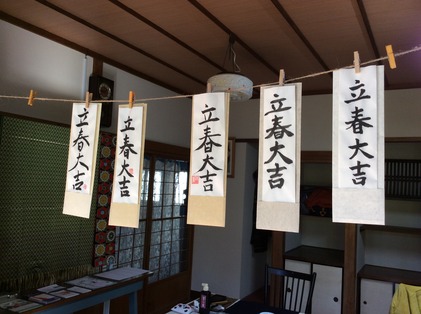 立春大吉
立春大吉
立春大吉
立春大吉
立春大吉